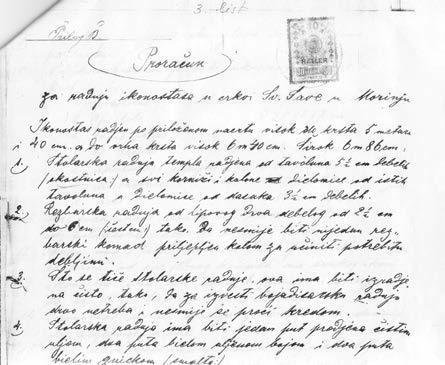 3. list
Prilog B
Proračun
HELLER
za radnju ikonostasa u crkvi Sv. Save u Morinju
Ikonostas radjen po priloženom nacrtu visok do krsta 5 metara
i 40 cm. a do vrha krsta visok 6 m 40 cm. Širok 6 m 86 cm.
1. Stolarska radnja templa radjena od tavoluna 5½ cm debelih
a svi korniži i kolone dielomice od istih
tavoluna a dielomice od dasaka 3½ cm debelih.
2. Rezbarska radnja od lipovog drva debelog od 2½ cm
do 6 cm tako. Da nesmije biti nijedan rez-
barski komad priljepljen kalom za učiniti potrebitu
debljinu.
3. Što se tiče stolarske radnje, ova ima biti izradje-
na čisto, tako, da za izvesti bojadisarsku radnju
drvo netreba i nesmije se proći kredom.
4. Stolarska radnja ima biti jedan put prodjena čistim
uljem, dva puta bielom uljenom bojom i dva puta
bielim